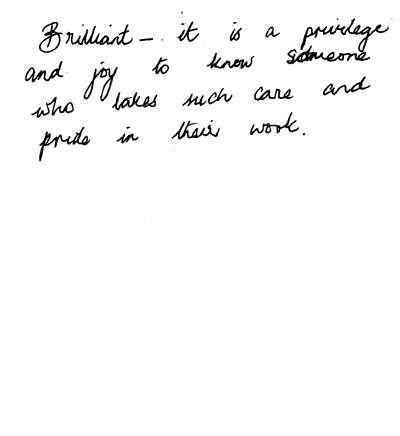 Brilliant – it is a privilege
and joy to know someone
who takes such care and
pride in their work.